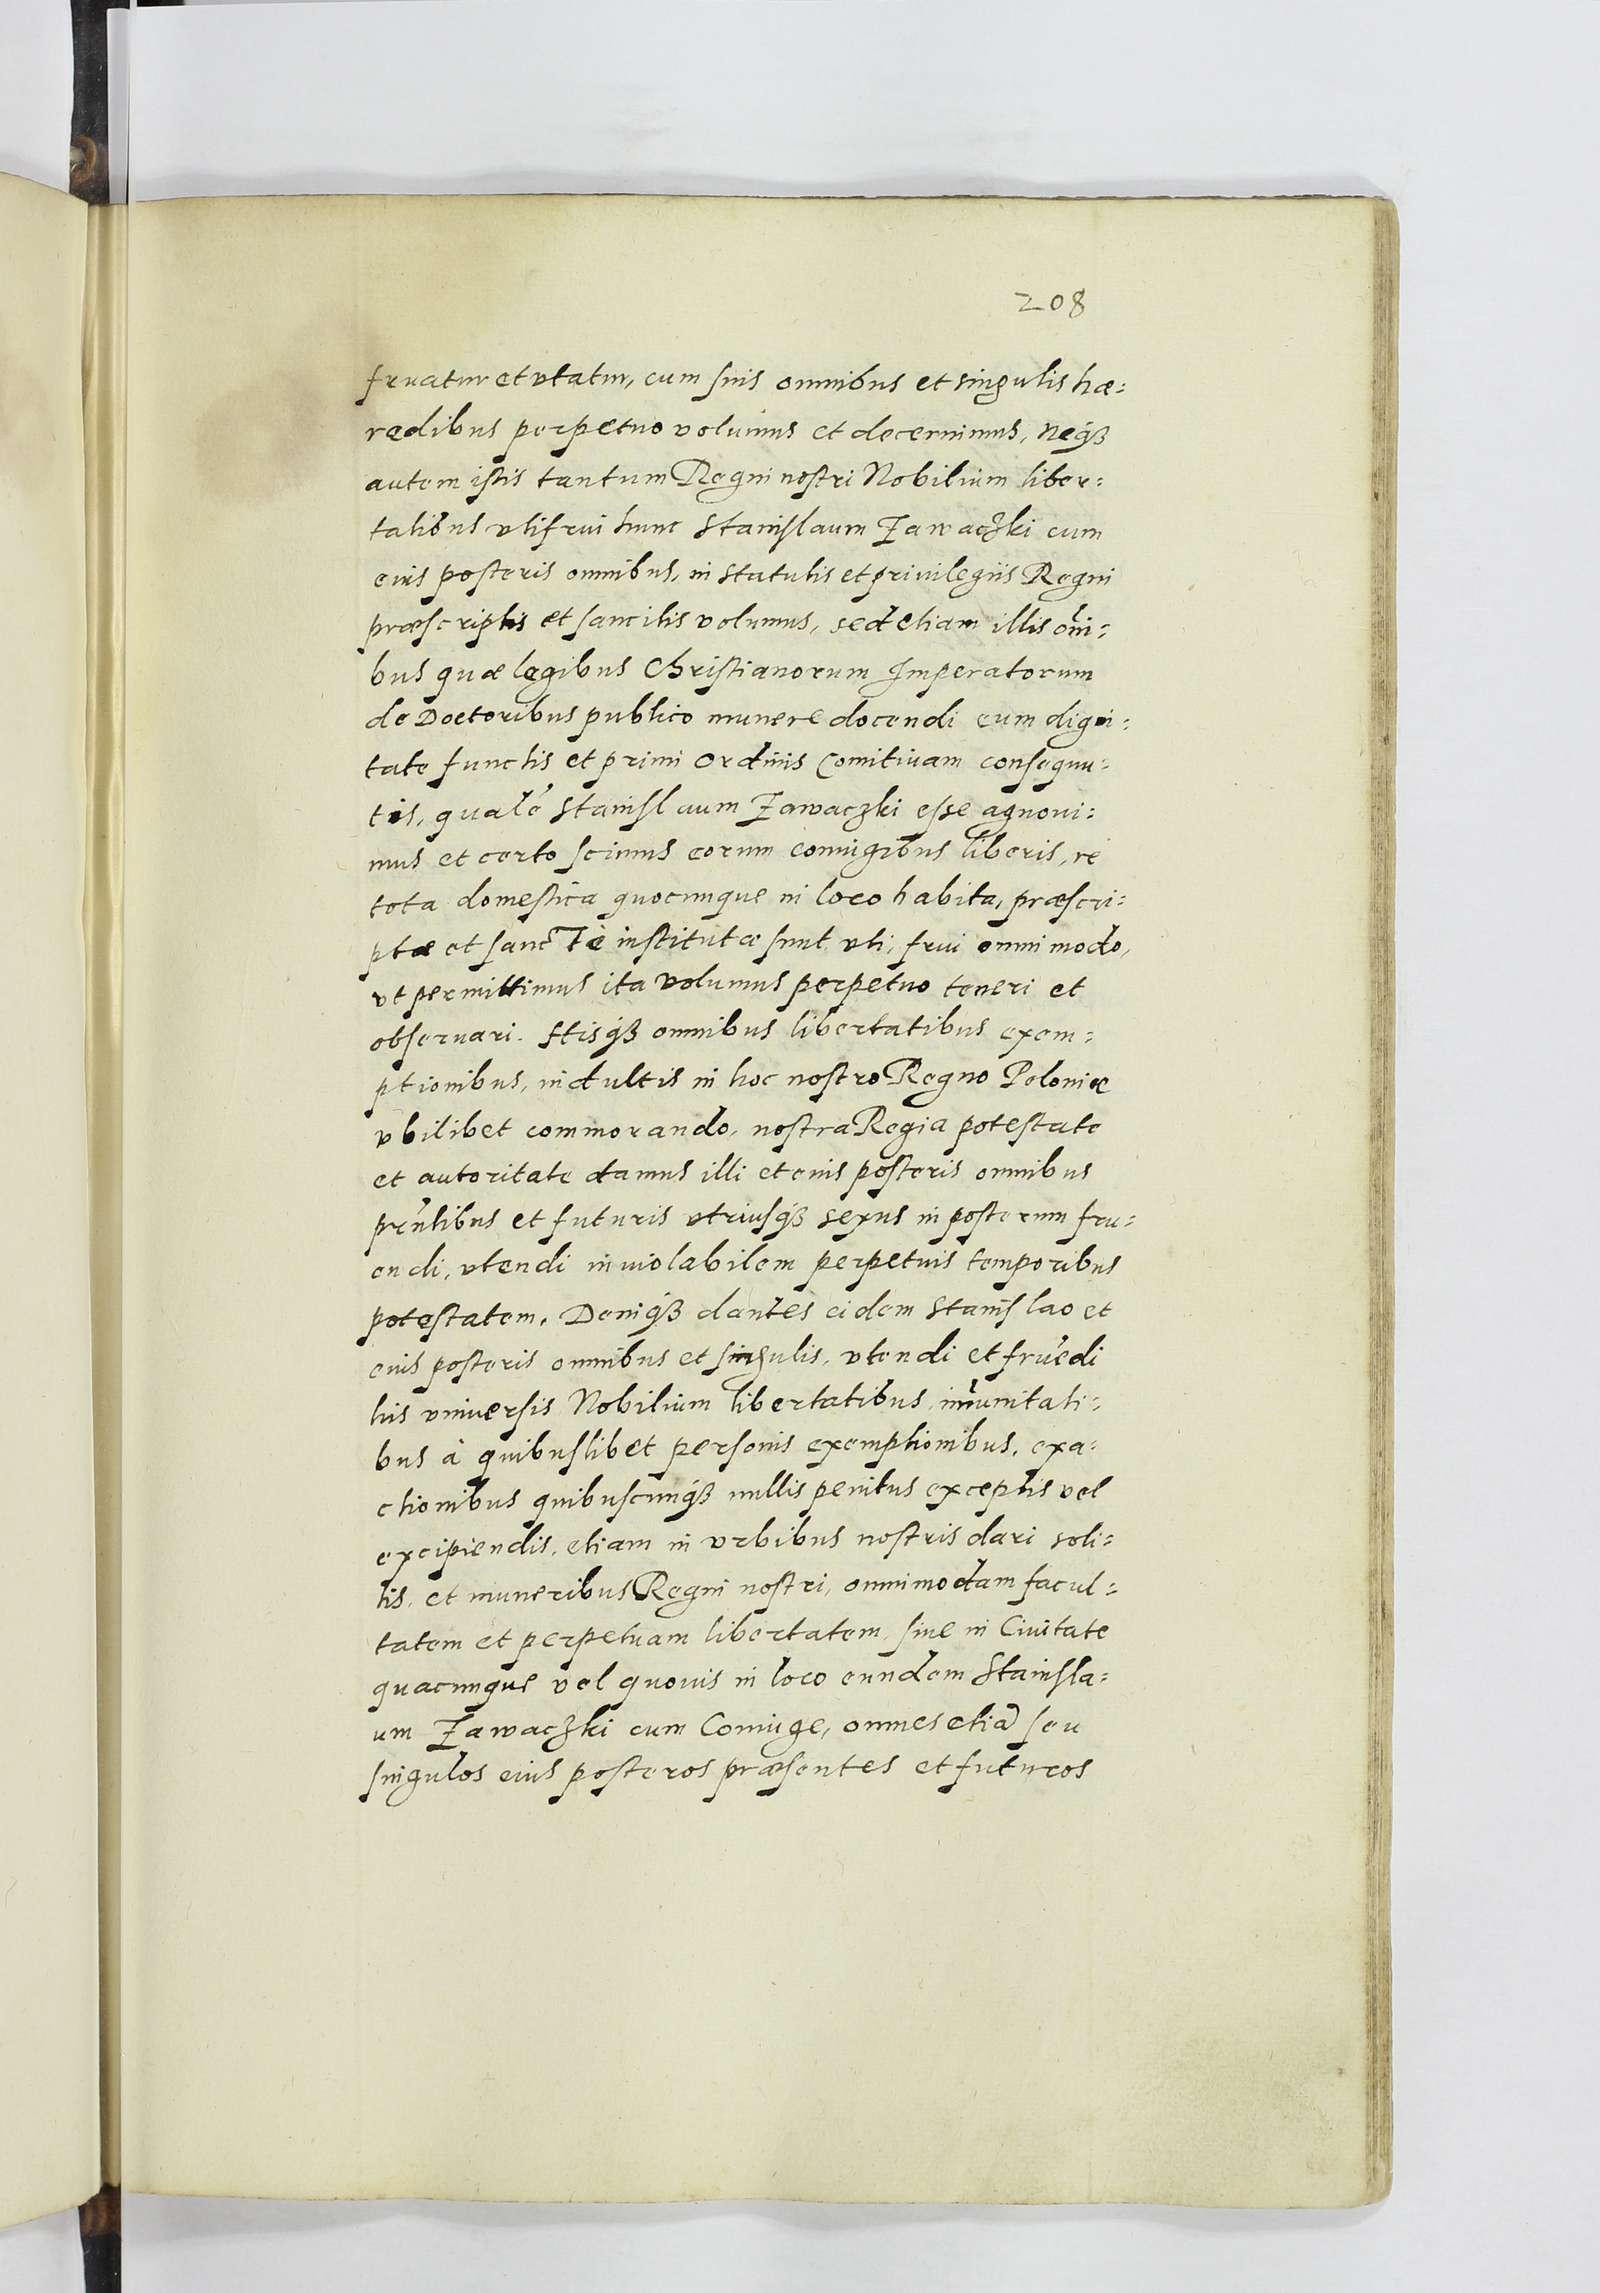 208
fruatur et vtatur, cum suis omnibus et singulis hæ=
redibus perpetuo volumus et decernimus, Neq́ꝫ
autem istis tantum Regni nostri Nobilium liber=
tatibus vti frui hunc Stanislaum Zawaczki cum
euis posteris omnibus, in statutis et priuilegiis Regni
præscriptis et sancitis volumus, sed etiam illis om̃i=
bus quæ legibus Christianorum Imperatorum
de Doctoribus publico munere docendi cum digni=
tate functis et primi Ordinis Comitiuam consequu=
tis, qualẽ Stanislaum Zawaczki esse agnoui=
mus et certo scimus eorum coniugibus liberis, re
tota domestica quocunque in loco habita, præscri=
ptæ et sancTè institutæ sunt vti, frui omnimodo,
vt permittimus ita volumus perpetuo teneri et
obseruari. Itisq́ꝫ omnibus libertatibus exem=
ptionibus, indultis in hoc nostro Regno Poloniæ
vbilibet commorando, nostra Regia potestate
et autoritate damus illi et euis posteris omnibus
pr̃ntibus et futuris vtriusq́ꝫ sexus in posterum fru=
endi, vtendi inuiolabilem perpetuis temporibus
potestatem. Deniq́ꝫ dantes eidem Stanislao et
euis posteris omnibus et singulis, vtendi et fruẽdi
his vniuersis Nobilium libertatibus, im̃unitati=
bus à quibuslibet personis exemptionibus, exa=
ctionibus quibuscunq́ꝫ nullis penitus exceptis vel
excipiendis, etiam in vrbibus nostris dari soli=
tis, et muneribus Regni nostri, omnimodam facul=
tatem et perpetuam libertatem, siue in Ciuitate
quacunque vel quouis in loco eundem Stanisla=
um Zawaczki cum Coniuge, omnes etiã seu
singulos eius posteros præsentes et futuros